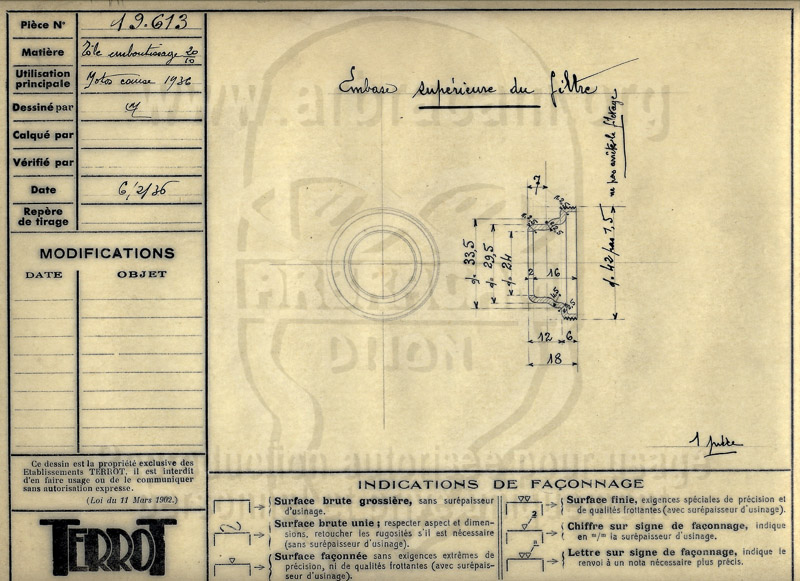 Pièce N° 19.613
Matière Tôle emboutissage 20/10
Utilisation principale Motos course 1936
Dessiné par
Calqué par
Vérifié par
Date 6/2/36
Repère de tirage
MODIFICATIONS
DATE OBJET
Embase supérieure du filtre
7
R.2,5
R.2,5
R.2,5
2 16
12 6
18
d= 33,5
d= 29,5
d= 24
d= 42 pas 1,5 ne pas arrêter le filetage
1 pièce
www. .org
PROFOND
DIJON
Ce dessin est la propriété exclusive des
Etablissements TERROT, il est interdit
d'en faire usage ou de le communiquer
sans autorisation expresse.
(Loi du 11 Mars 1902.)
TERROT
INDICATIONS DE FAÇONNAGE
Surface brute grossière, sans surépaisseur
d'usinage.
Surface brute unie; respecter aspect et dimen-
sions, retoucher les rugosités s'il est nécessaire
(sans surépaisseur d'usinage).
Surface façonnée sans exigences extrêmes de
précision, ni de qualités frottantes (avec surépais-
seur d'usinage).
Surface finie, exigences spéciales de précision et
de qualités frottantes (avec surépaisseur d'usinage).
Chiffre sur signe de façonnage, indique
en m/m la surépaisseur d'usinage.
Lettre sur signe de façonnage, indique le
renvoi à un nota nécessaire plus précis.